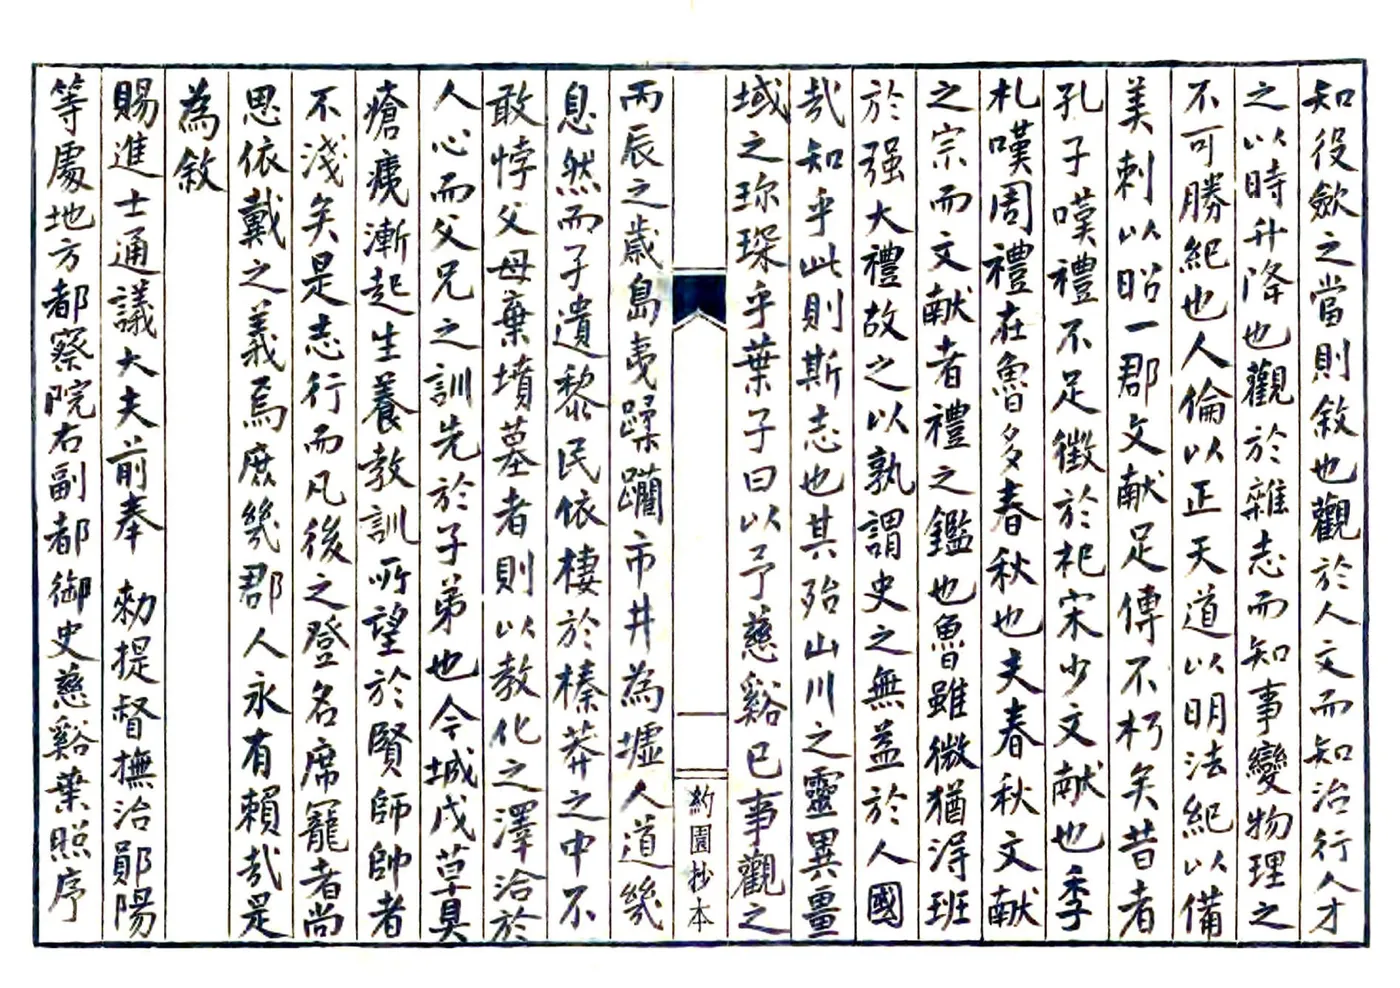 知役歛之當則敘也觀於人文而知治行人才
之以時升降也觀於雜志而知事變物理之
不可勝紀也人倫以正天道以明法紀以備
美刺以昭一郡文献足傳不朽矣昔者
孔子嘆禮不足徵於杞宋少文献也季
札嘆周禮在魯多春秋也夫春秋文献
之宗而文献者禮之鑑也魯雖微猶淂班
於强大禮故之以孰謂史之無益於人國
哉知乎此則斯志也其殆山川之靈異畺
域之珎琛乎葉子曰以予慈谿已事觀之
約園抄本
丙辰之歲島夷蹂躙市井為墟人道幾
息然而孑遺黎民依棲於榛莽之中不
敢悖父母棄墳墓者則以教化之澤洽於
人心而父兄之訓先於子弟也今城戍草具
瘡痍漸起生養教訓所望於賢師帥者
不淺矣是志行而凡後之登名席寵者尚
思依戴之義焉庶幾郡人永有賴哉是
為敘
賜進士通議大夫前奉 勅提督撫治鄖陽
等處地方都察院右副都御史慈谿葉照序